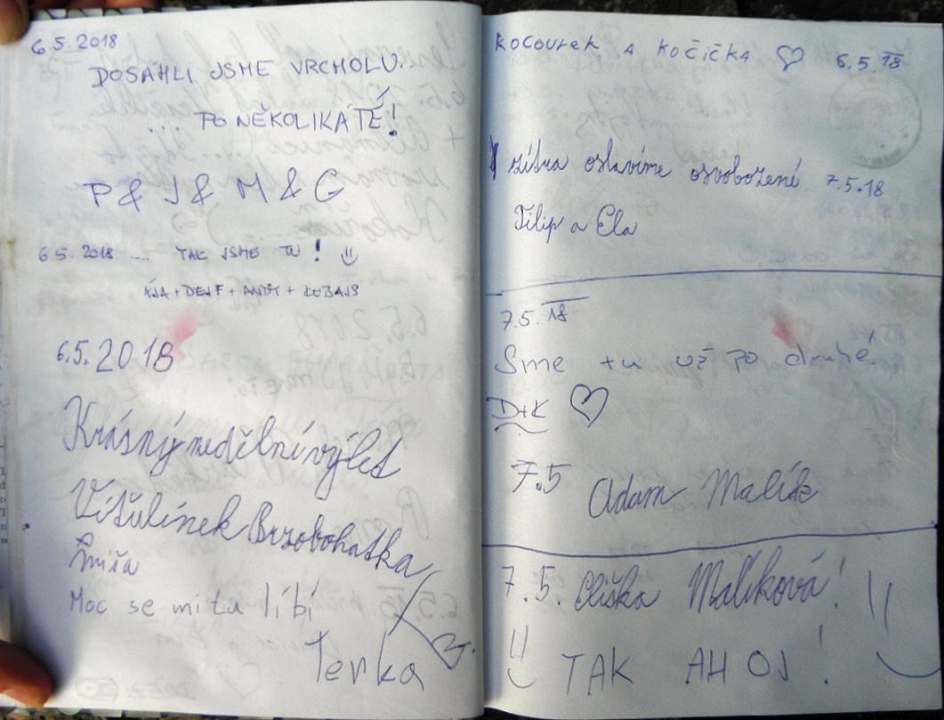 6.5.2018
DOSÁHLI JSME VRCHOLU.
... PO NĚKOLIKÁTÉ!
P & J & M & G
6.5.2018 .... TAK JSME TU!
KÁJA + DEJF + ANDY +
6.5.2018
Krásný nedělní výlet
Víťulínek Brzobohatka
Míša
Moc se mi tu líbí
Terka
KOCOUREK A KOČIČKA ♡ 6.5.18
zítra oslavíme osvobození 7.5.18
Filip a Ela
7.5.18
Sme tu už po druhé.
D+K ♡
7.5 Adam Malík
7.5. Eliška Malíková!
TAK AHOJ!